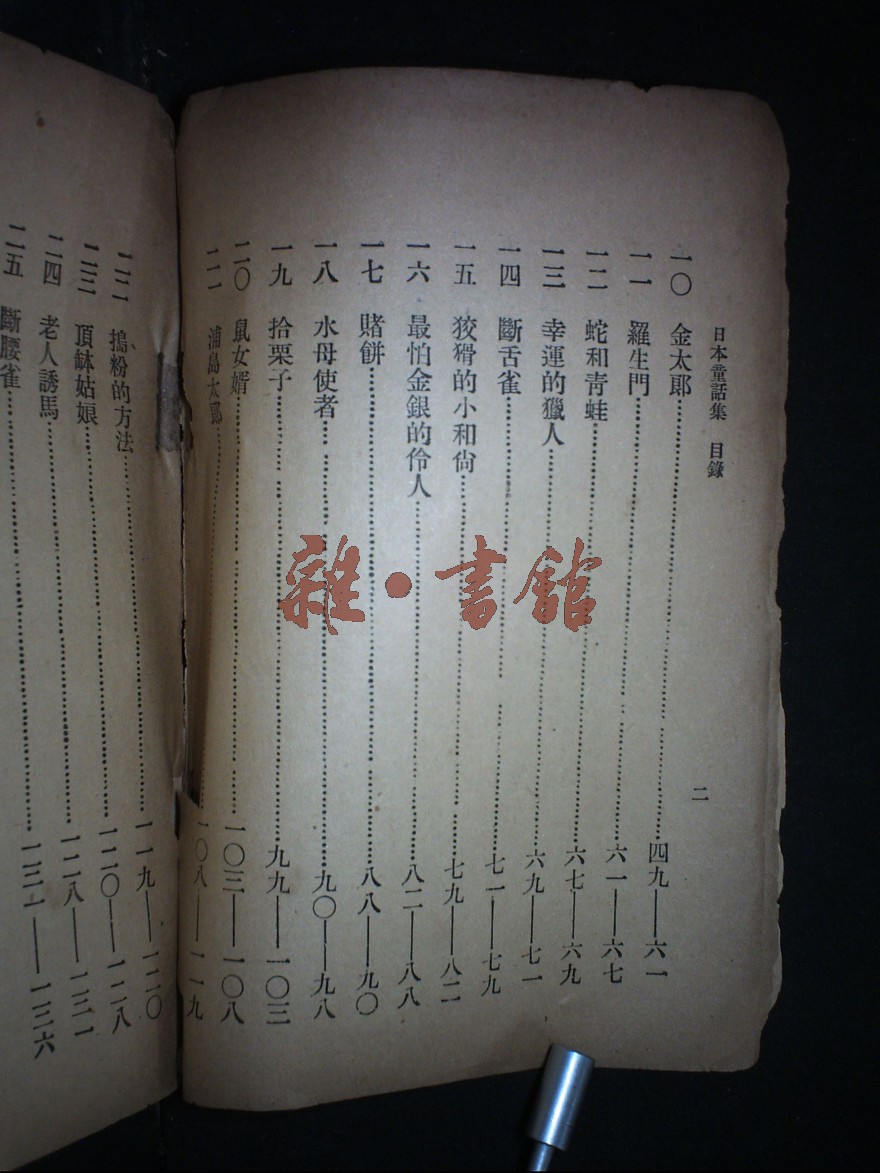 日本童話集 目錄
二
一〇 金太郎……四九——六一
一一 羅生門……六一——六七
一二 蛇和青蛙……六七——六九
一三 幸運的獵人……六九——七一
一四 斷舌雀……七一——七九
一五 狡猾的小和尙……七九——八二
一六 最怕金銀的伶人……八二——八八
一七 賭餅……八八——九〇
一八 水母使者……九〇——九八
一九 拾栗子……九九——一〇三
二〇 鼠女婿……一〇三——一〇八
二一 浦島太郎……一〇八——一一九
二二 搗粉的方法……一一九——一二〇
二三 頂缽姑娘……一二〇——一二八
二四 老人誘馬……一二八——一三一
二五 斷腰雀……一三一——一三六
雜·書館